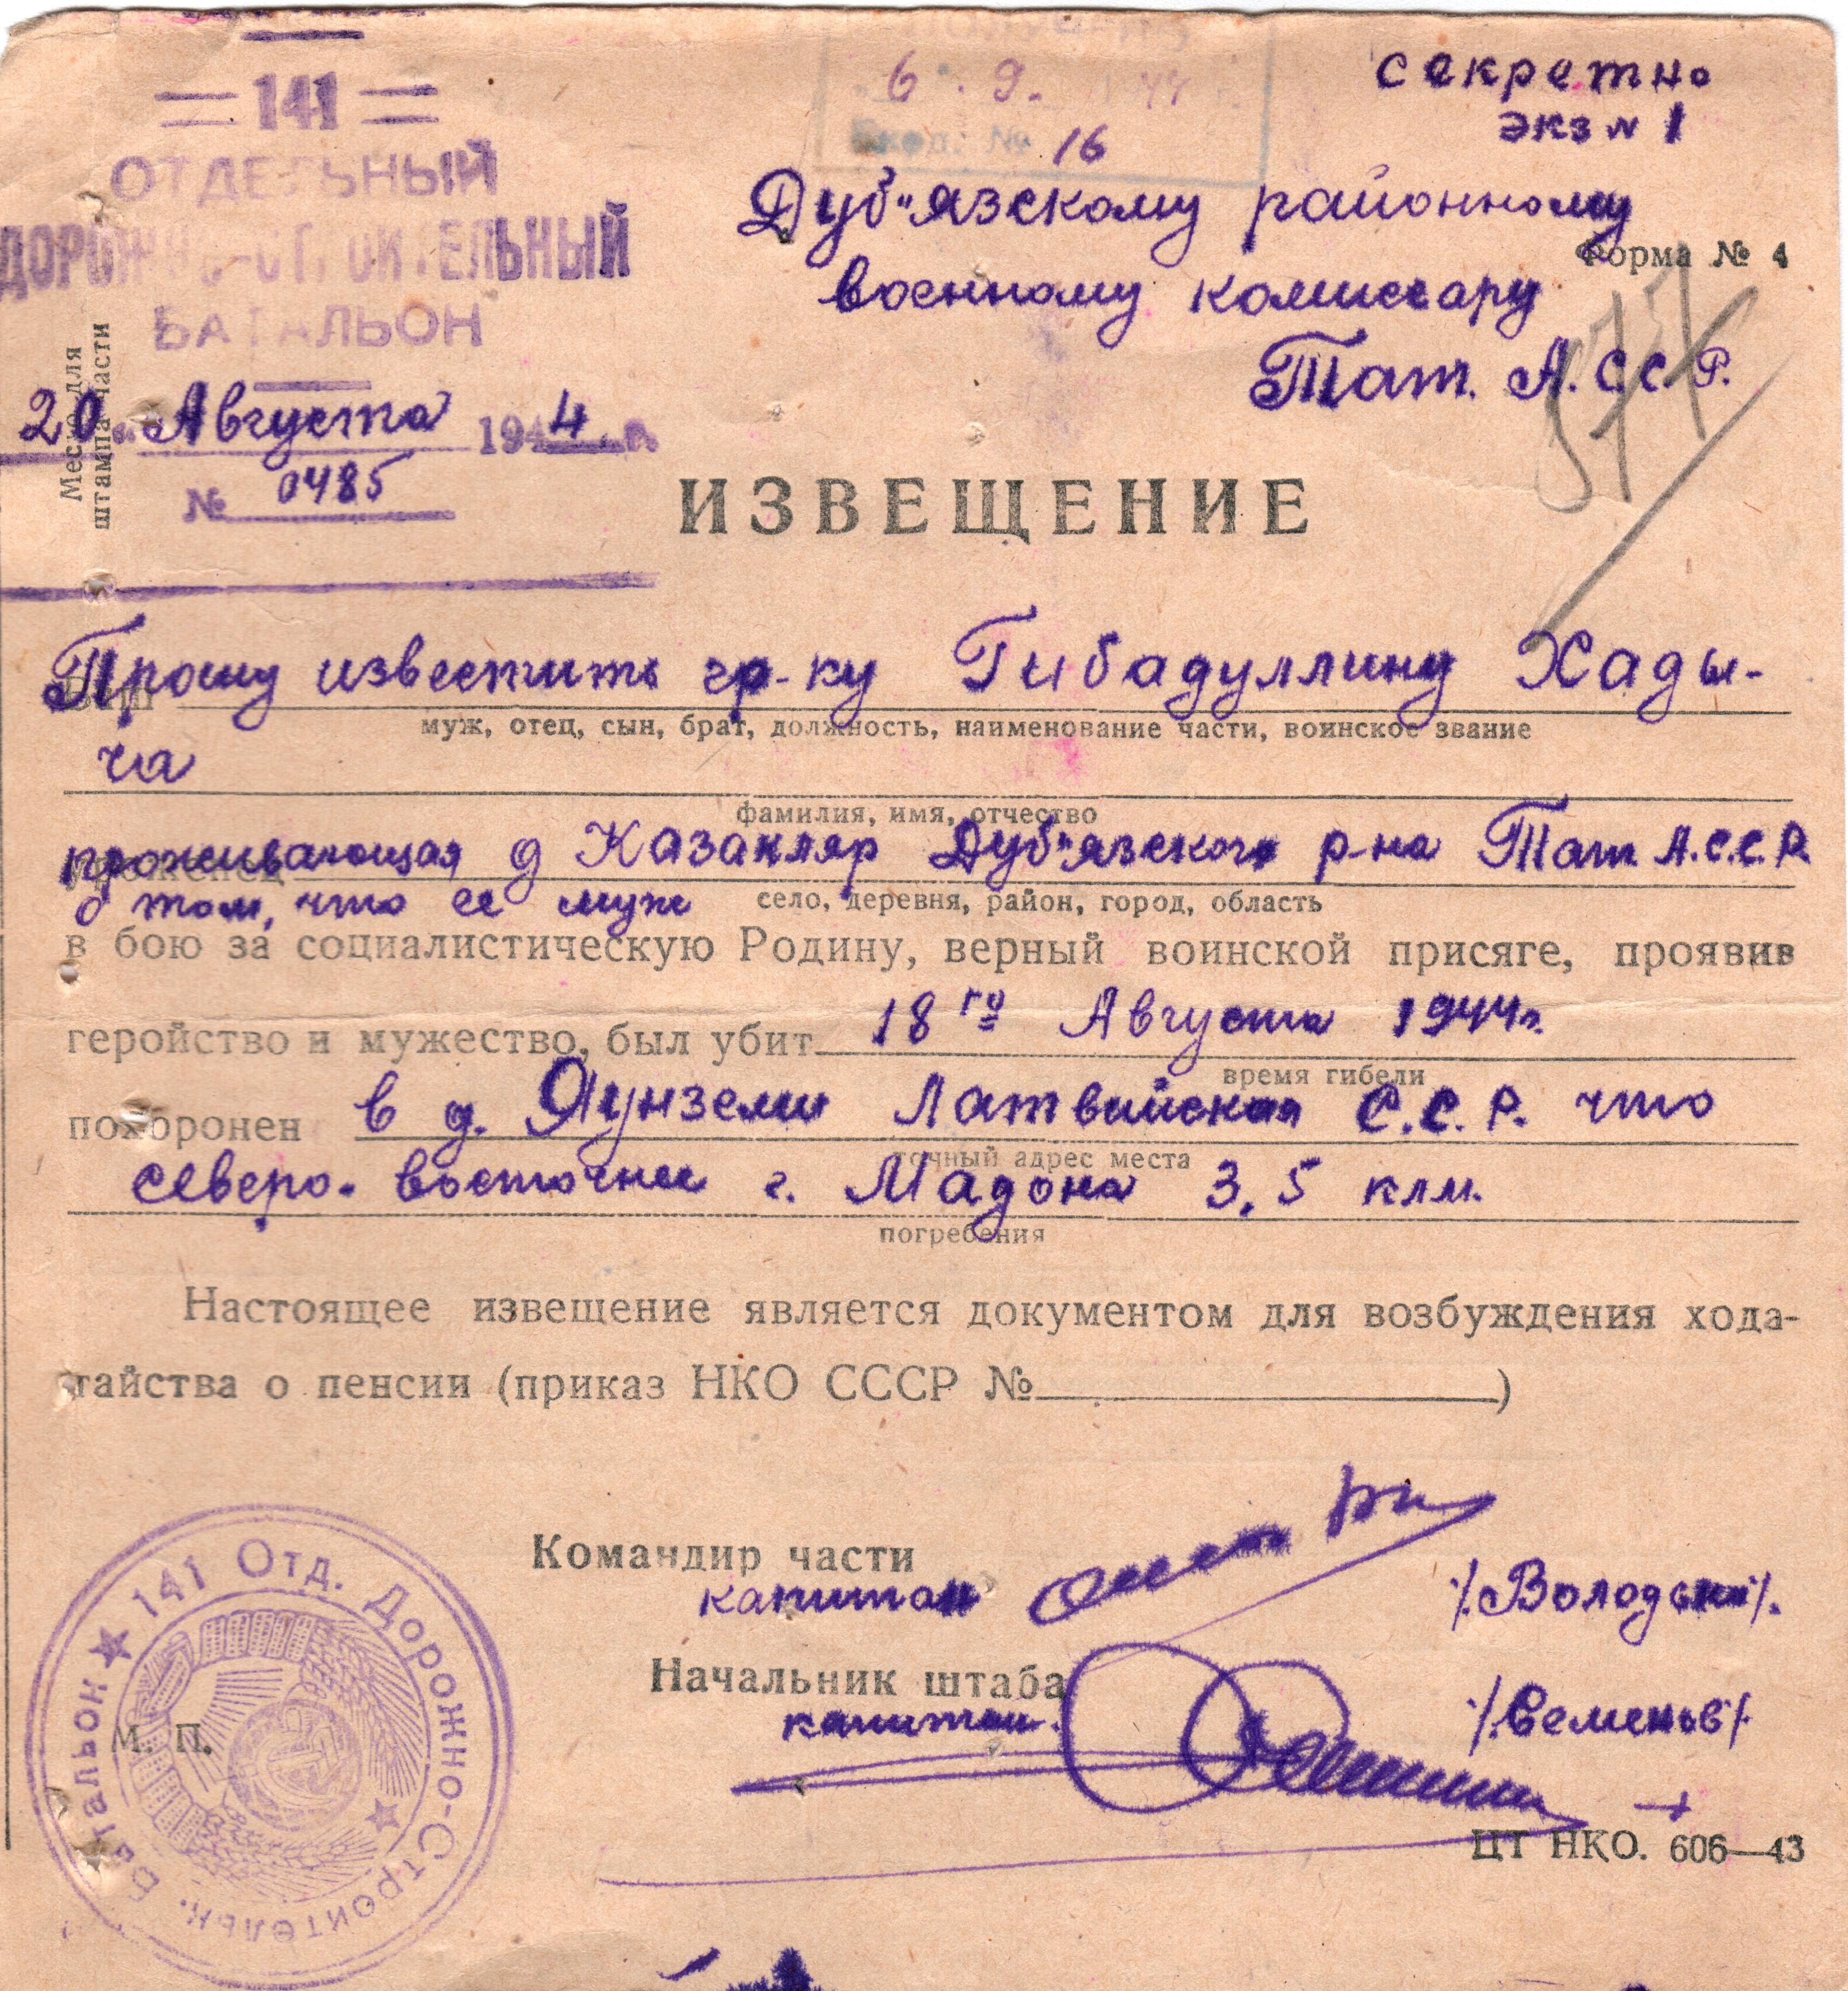 141
ОТДЕЛЬНЫЙ
ДОРОЖНО-СТРОИТЕЛЬНЫЙ
БАТАЛЬОН
20 " Августа 1944 г.
№ 0485
Место для
штампа части
6. 9. 44
Вход. № 16
секретно
экз N 1
Дуб"язскому районному
Форма № 4
военному комиссару
Тат. А.С.С.Р.
ИЗВЕЩЕНИЕ
Прошу известить гр-ку Гибадуллину Хады-
муж, отец, сын, брат, должность, наименование части, воинское звание
ча
фамилия, имя, отчество
проживающая д Казакляр Дуб"язского р-на Тат А.С.С.Р.
село, деревня, район, город, область
о том, что ее муж
в бою за социалистическую Родину, верный воинской присяге, проявив
геройство и мужество, был убит 18го Августа 1944г.
время гибели
похоронен в д. Яунземи Латвийская С.С.Р. что
точный адрес места
северо-восточнее г. Мадона 3,5 клм.
погребения
Настоящее извещение является документом для возбуждения хода-
тайства о пенсии (приказ НКО СССР № )
Командир части
капитан /Володькин/.
Начальник штаба
капитан. /Семенов/
М. П.
141 Отд. Дорожно-Строительн. Батальон
ЦТ НКО. 606—43